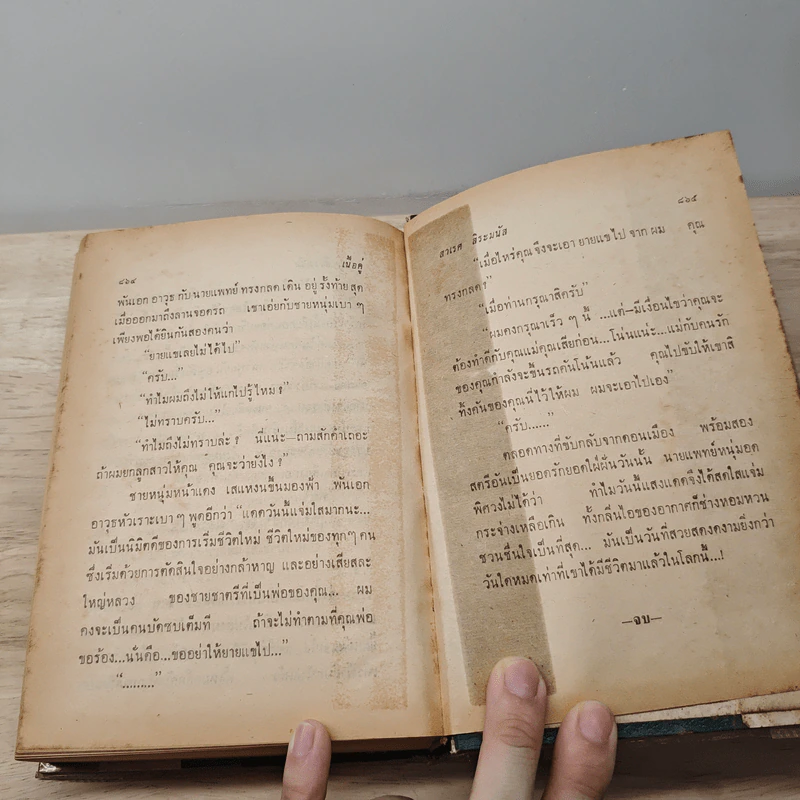 ๘๖๔
เนื้อคู่
พันเอก อาวุธ กับ นายแพทย์ ทรงกลด เดิน อยู่ รั้งท้าย สุด
เมื่อออกมาถึงลานจอดรถ เขาเอ่ยกับชายหนุ่มเบา ๆ
เพียงพอได้ยินกันสองคนว่า
“ยายแขเลยไม่ได้ไป”
“ครับ...”
“ทำไมผมถึงไม่ให้แกไปรู้ไหม ?”
“ไม่ทราบครับ...”
“ทำไมถึงไม่ทราบล่ะ ? นี่แน่ะ—ถามสักคำเถอะ
ถ้าผมยกลูกสาวให้คุณ คุณจะว่ายังไง ?”
ชายหนุ่มหน้าแดง เสแหงนขึ้นมองฟ้า พันเอก
อาวุธหัวเราะเบา ๆ พูดอีกว่า “แดดวันนี้แจ่มใสมากนะ...
มันเป็นนิมิตดีของการเริ่มชีวิตใหม่ ชีวิตใหม่ของทุกๆ คน
ซึ่งเริ่มด้วยการตัดสินใจอย่างกล้าหาญ และอย่างเสียสละ
ใหญ่หลวง ของชายชาตรีที่เป็นพ่อของคุณ... ผม
คงจะเป็นคนบัดซบเต็มที ถ้าจะไม่ทำตามที่คุณพ่อ
ขอร้อง...นั่นคือ...ขออย่าให้ยายแขไป...”
“.........”
๘๖๕
สาเรศ สิระมนัส
“เมื่อไหร่คุณ จึงจะเอา ยายแขไป จาก ผม คุณ
ทรงกลด?”
“เมื่อท่านกรุณาสิครับ”
“ผมคงกรุณาเร็ว ๆ นี้ ...แต่—มีเงื่อนไขว่าคุณจะ
ต้องทำดีกับคุณแม่คุณเสียก่อน...โน่นแน่ะ...แม่กับคนรัก
ของคุณกำลังจะขึ้นรถคันโน้นแล้ว คุณไปขับให้เขาสิ
ทิ้งคันของคุณนี่ไว้ให้ผม ผมจะเอาไปเอง”
“ครับ......”
ตลอดทางที่ขับกลับจากดอนเมือง พร้อมสอง
สตรีอันเป็นยอดรักยอดใฝ่ฝันวันนั้น นายแพทย์หนุ่มอด
พิศวงไม่ได้ว่า ทำไมวันนี้แสงแดดจึงได้สดใสแจ่ม
กระจ่างเหลือเกิน ทั้งกลิ่นไอของอากาศก็ช่างหอมหวน
ชวนชื่นใจเป็นที่สุด... มันเป็นวันที่สวยสดงดงามยิ่งกว่า
วันใดหมดเท่าที่เขาได้มีชีวิตมาแล้วในโลกนี้...!
—จบ—